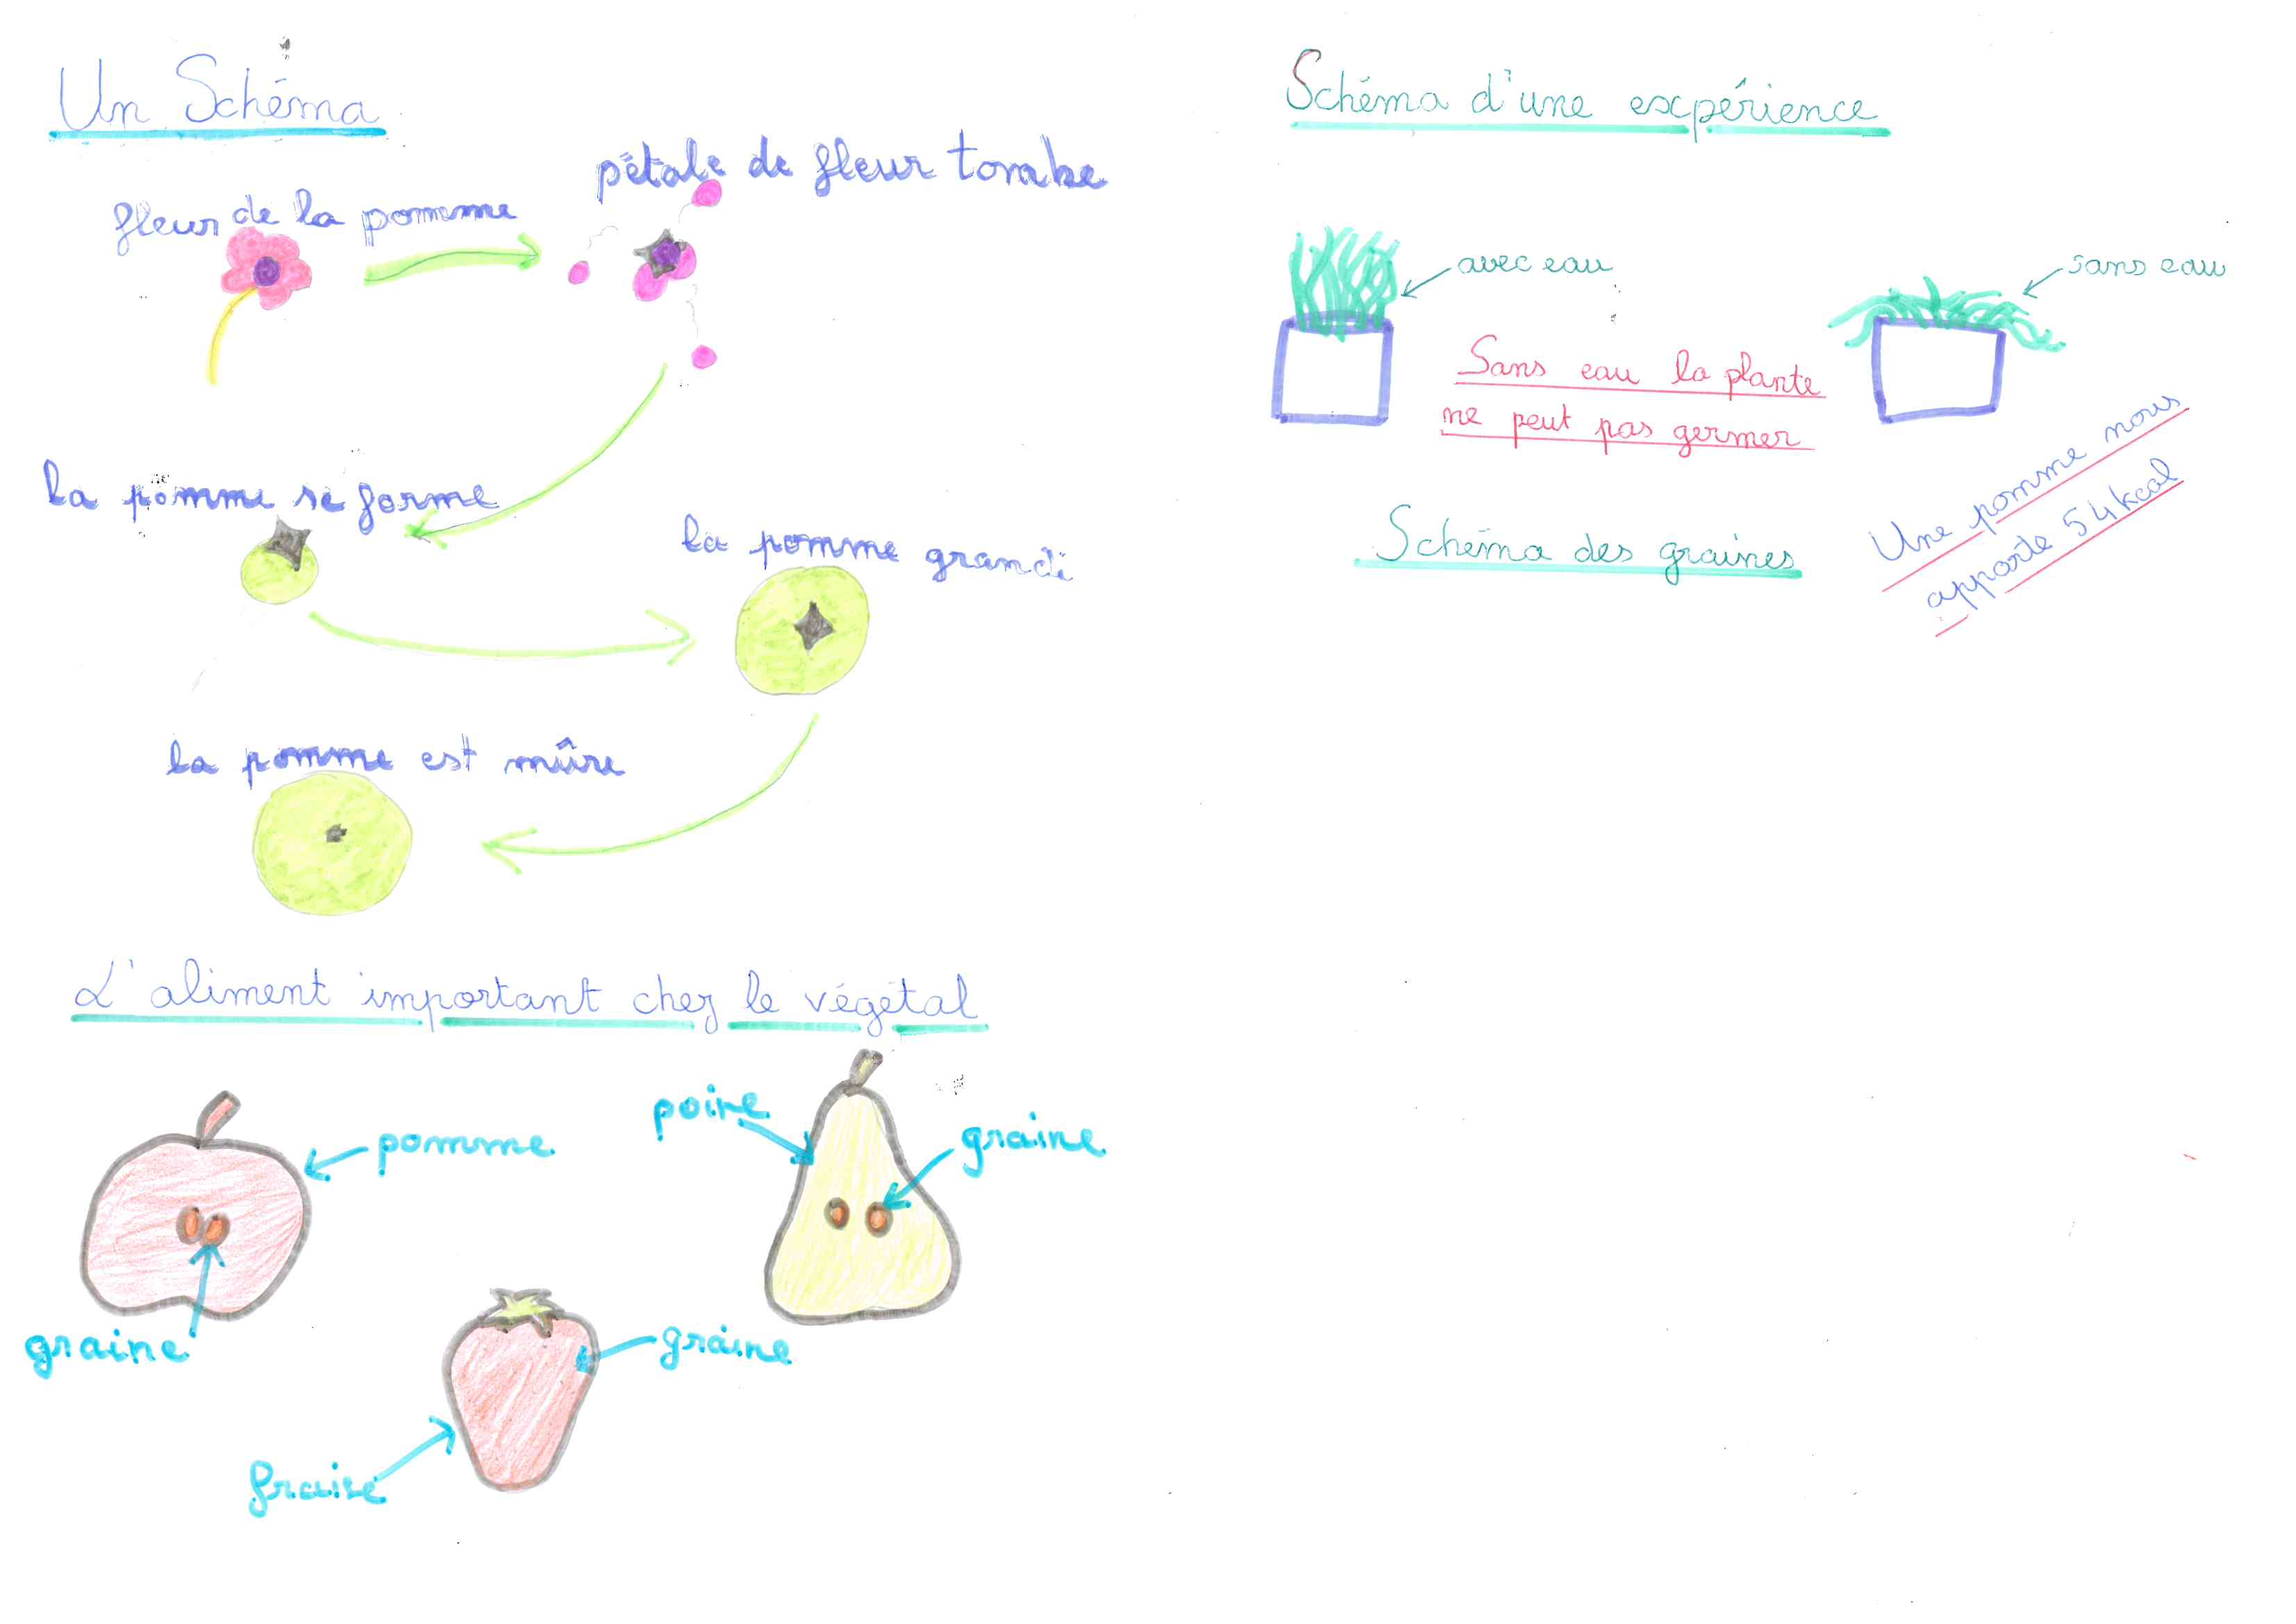 Un Schéma
fleur de la pomme
pétale de fleur tombe
la pomme se forme
la pomme grandi
la pomme est mûre
L'aliment important chez le végétal
pomme
poire
graine
graine
graine
fraise
Schéma d'une expérience
avec eau
sans eau
Sans eau la plante
ne peut pas germer
Schéma des graines
Une pomme nous
apporte 54kcal